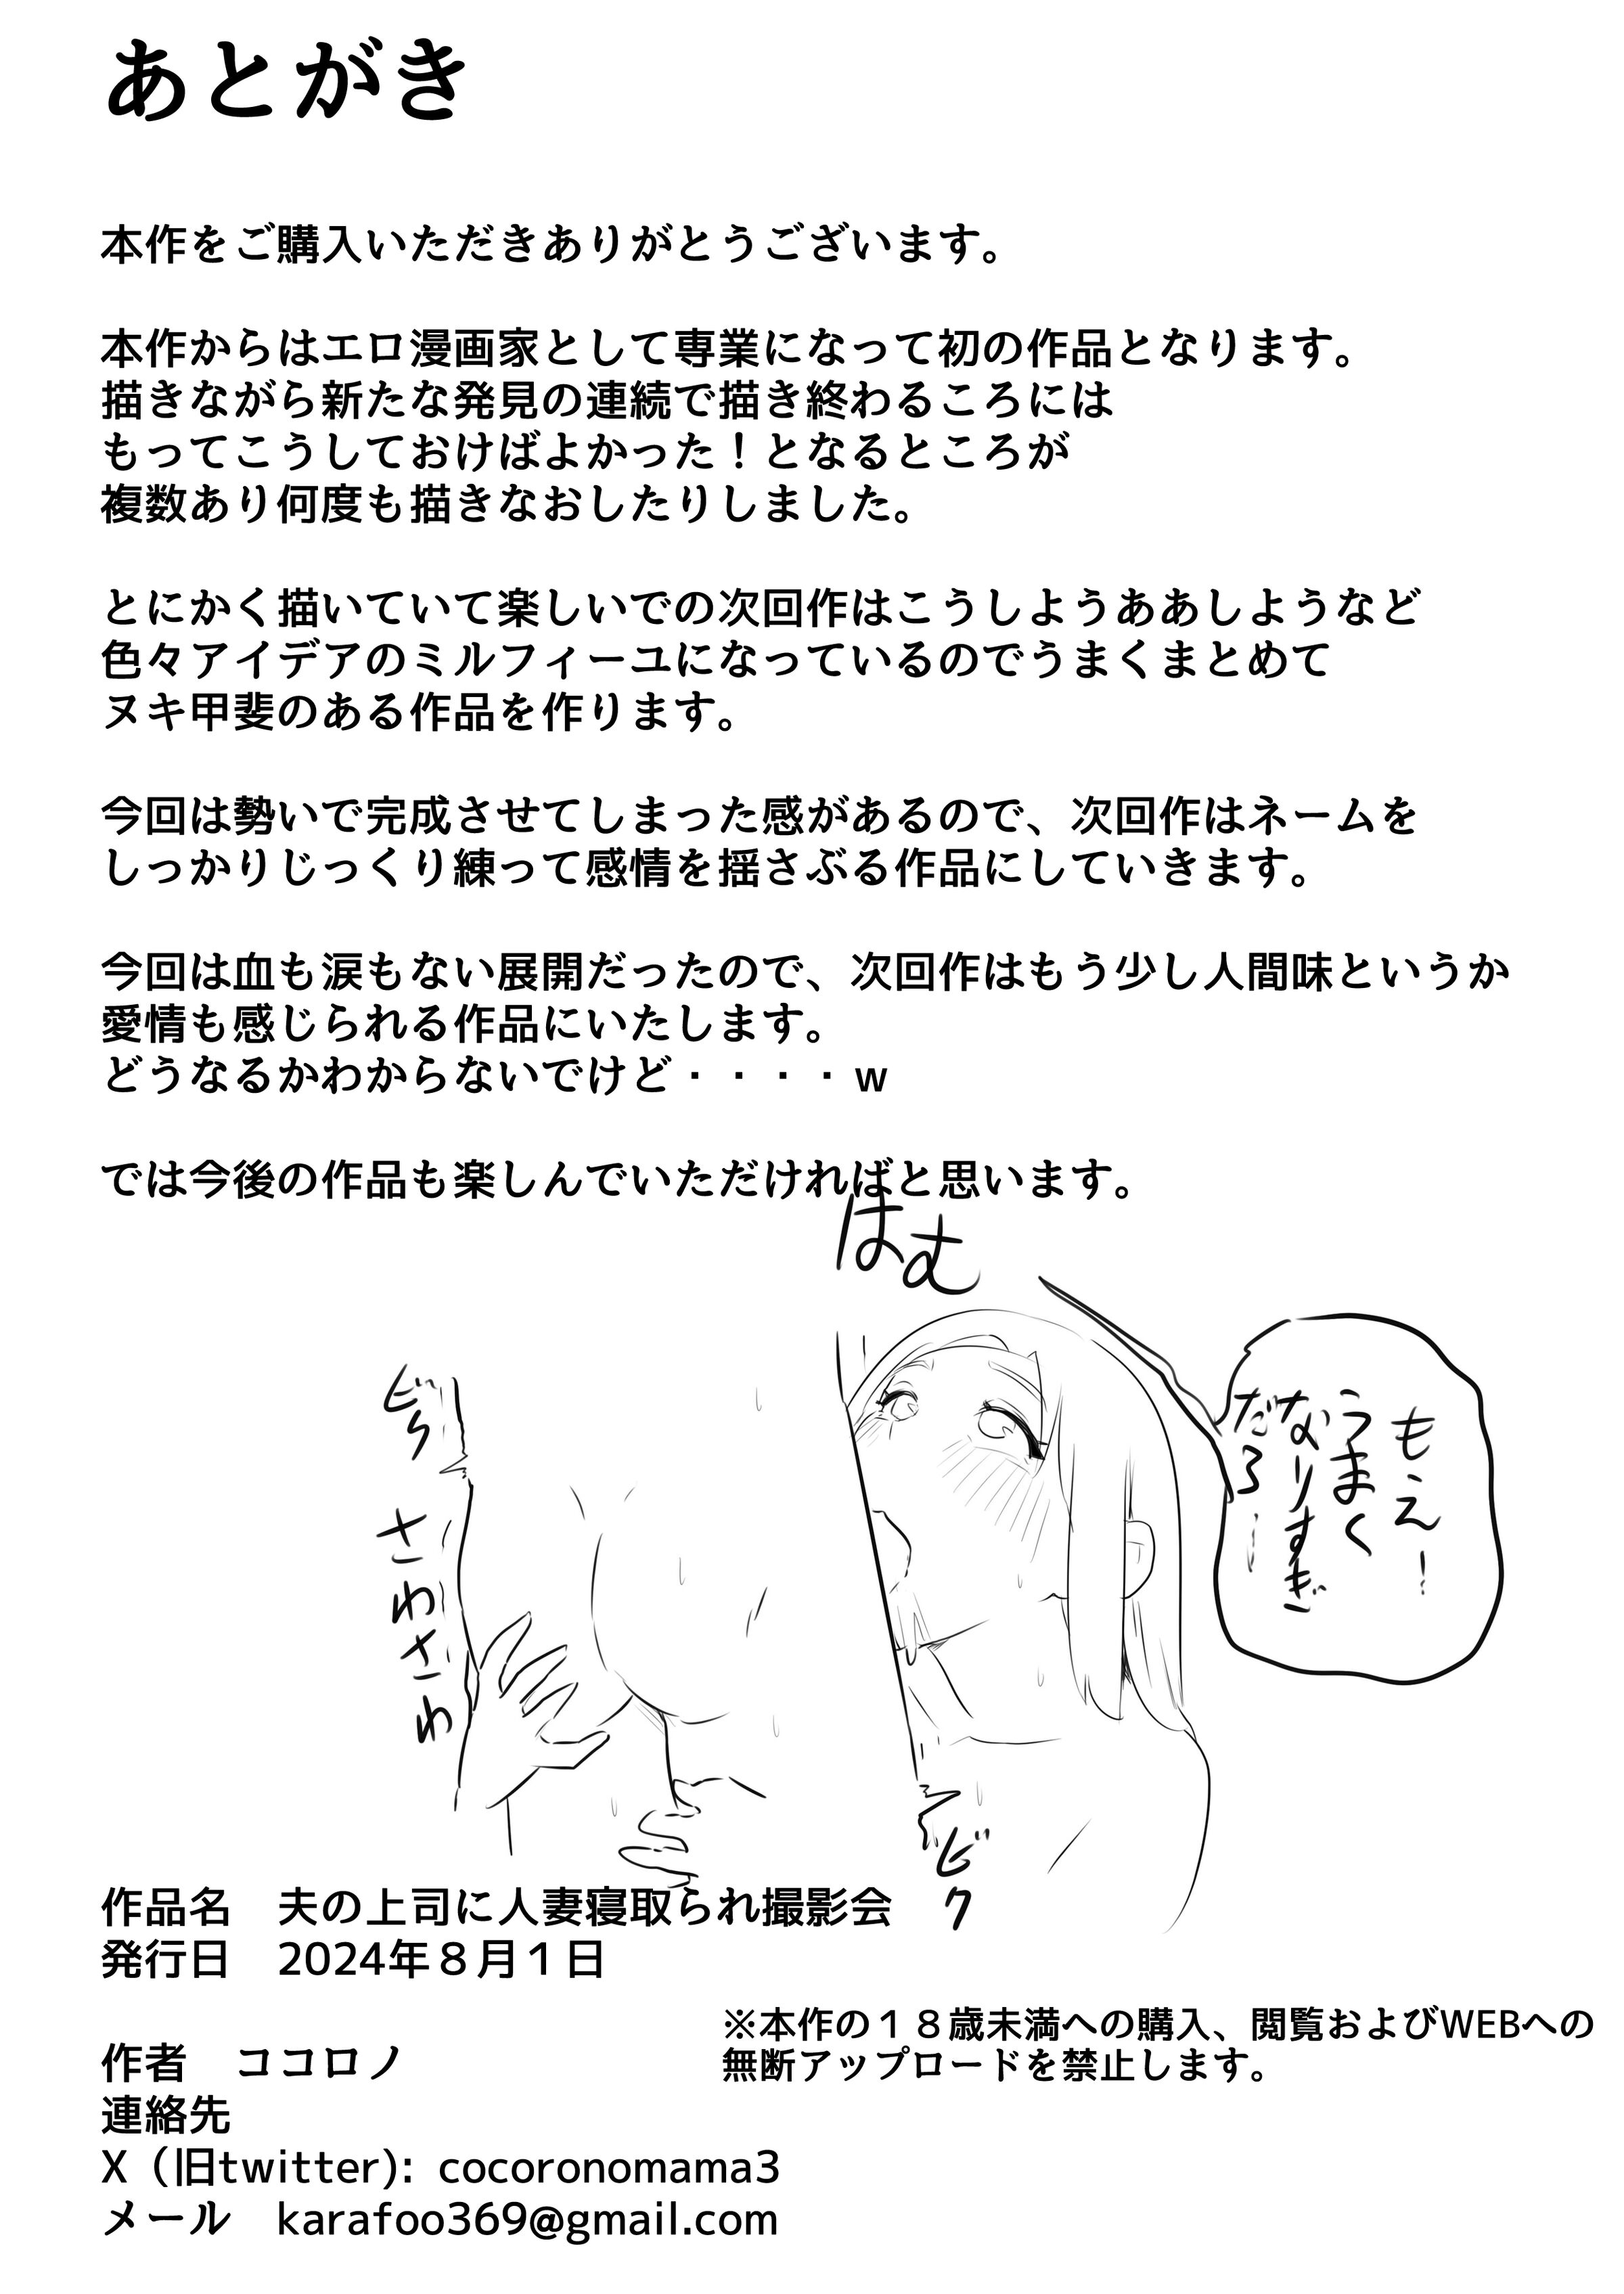 あとがき
本作をご購入いただきありがとうございます。
本作からはエロ漫画家として専業になって初の作品となります。
描きながら新たな発見の連続で描き終わるころには
もってこうしておけばよかった！となるところが
複数あり何度も描きなおしたりしました。
とにかく描いていて楽しいでの次回作はこうしようああしようなど
色々アイデアのミルフィーユになっているのでうまくまとめて
ヌキ甲斐のある作品を作ります。
今回は勢いで完成させてしまった感があるので、次回作はネームを
しっかりじっくり練って感情を揺さぶる作品にしていきます。
今回は血も涙もない展開だったので、次回作はもう少し人間味というか
愛情も感じられる作品にいたします。
どうなるかわからないでけど・・・・w
では今後の作品も楽しんでいただければと思います。
はむ
もえ!
うまく
なりすぎ
だろ…
さわさわ
ビク
作品名　夫の上司に人妻寝取られ撮影会
発行日　2024年８月１日
※本作の１８歳未満への購入、閲覧およびWEBへの
無断アップロードを禁止します。
作者　ココロノ
連絡先
X（旧twitter): cocoronomama3
メール　karafoo369@gmail.com